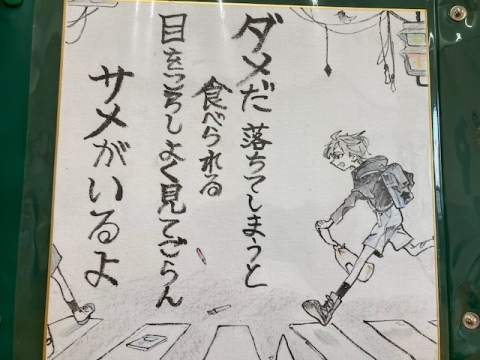 ダメだ 落ちてしまうと
食べられる
目をこらしよく見てごらん
サメがいるよ